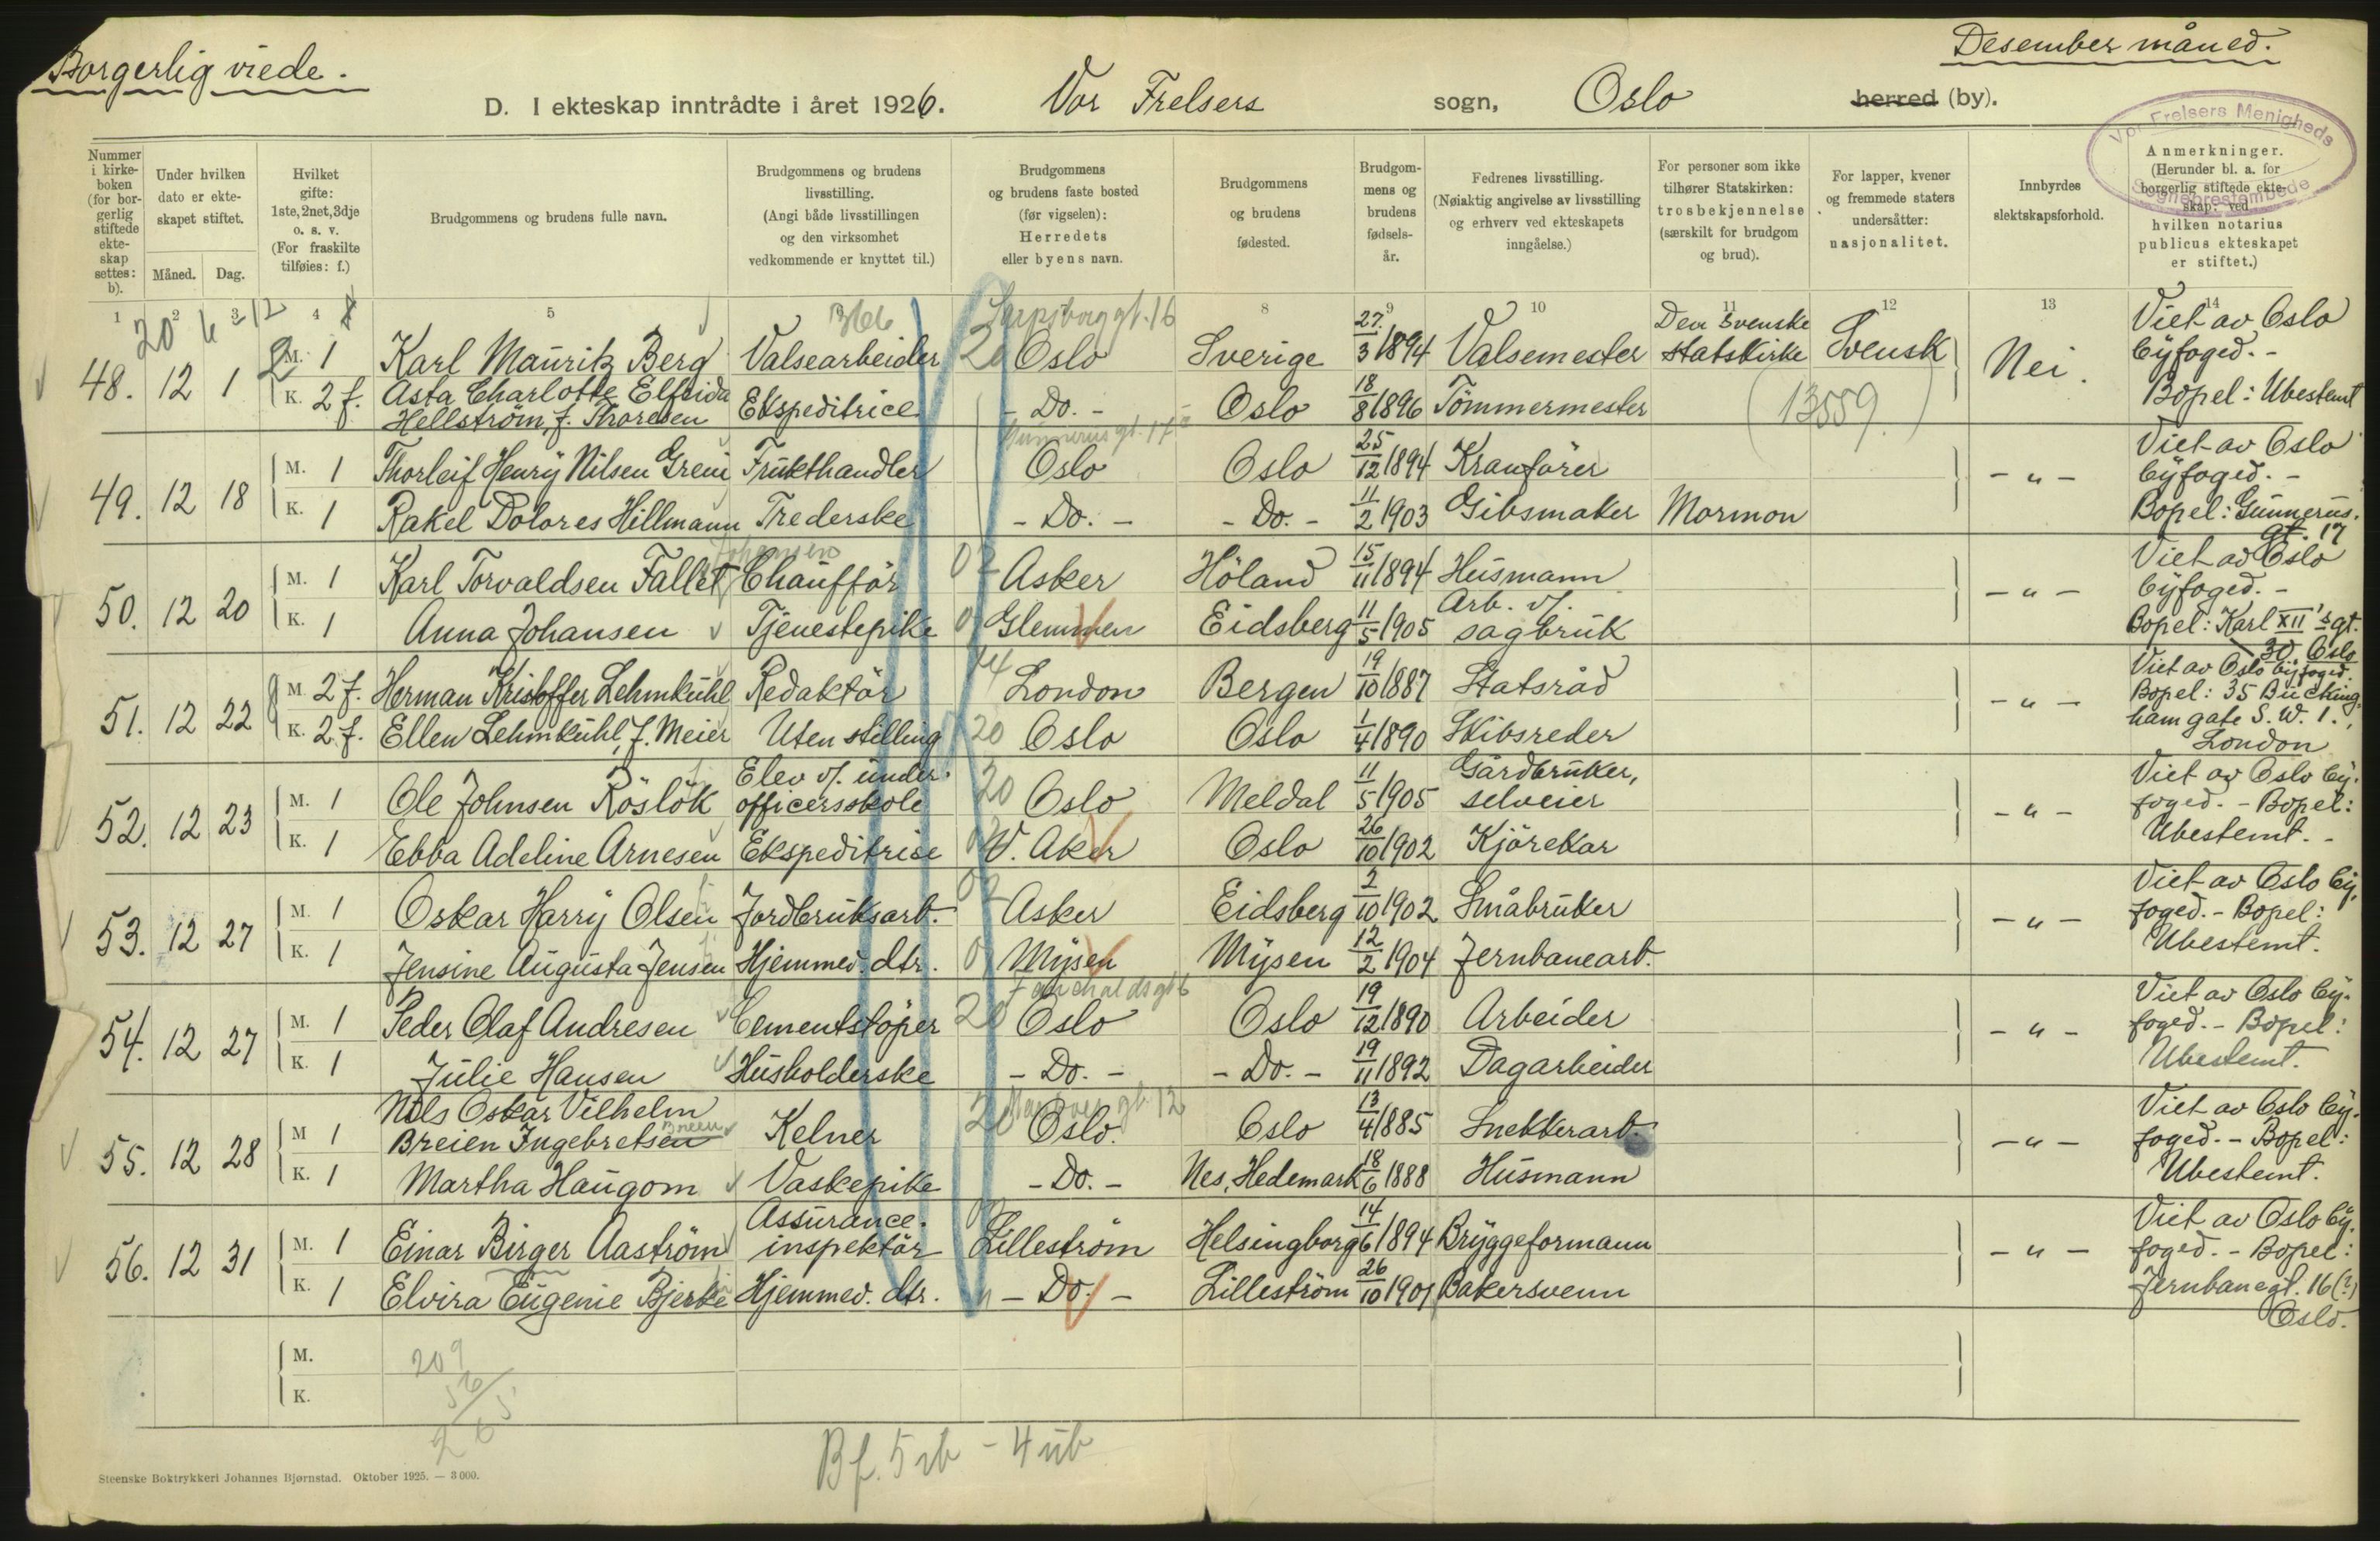 Borgerlig viede.
Desember måned.
D. I ekteskap inntrådte i året 1926. Vor Frelsers sogn, Oslo herred (by).
Vor Frelsers Menigheds Sogneprestembede
Nummer i kirkeboken (for borgerlig stiftede ekteskap settes: b).
Under hvilken dato er ekteskapet stiftet.
Måned. Dag.
Hvilket gifte: 1ste, 2net, 3dje o. s. v. (For fraskilte tilføies: f.)
Brudgommens og brudens fulle navn.
Brudgommens og brudens livsstilling. (Angi både livsstillingen og den virksomhet vedkommende er knyttet til.)
Brudgommens og brudens faste bosted (før vigselen): Herredets eller byens navn.
Brudgommens og brudens fødested.
Brudgommens og brudens fødselsår.
Fedrenes livsstilling. (Nøiaktig angivelse av livsstilling og erhverv ved ekteskapets inngåelse.)
For personer som ikke tilhører Statskirken: trosbekjennelse (særskilt for brudgom og brud).
For lapper, kvener og fremmede staters undersåtter: nasjonalitet.
Innbyrdes slektskapsforhold.
Anmerkninger. (Herunder bl. a. for borgerlig stiftede ekteskap: ved hvilken notarius publicus ekteskapet er stiftet.)
1 2 3 4 5 8 9 10 11 12 13 14
48. 12 1 M. 1 Karl Mauritz Berg Valsearbeider 20 Oslo Sverige 27/3 1894 Valsemester Den svenske statskirke Svensk Nei. Viet av Oslo byfoged. - Bopel: Ubestemt
K. 2 f. Asta Charlotte Elfrida Hellström, f. Thoresen Ekspeditrice - Do. - Oslo 18/8 1896 Tömmermester (13559)
49. 12 18 M. 1 Thorleif Henry Nilsen Greni Frukthandler Oslo Oslo 25/12 1894 Kranförer - " - Viet av Oslo byfoged. - Bopel: Gunnerus. gt. 17
K. 1 Rakel Dolores Hillmann Trederske - Do. - - Do. - 11/2 1903 Gibsmaker Mormon
50. 12 20 M. 1 Karl Torvaldsen Fallet Johansen Chaufför 02 Asker Höland 15/11 1894 Husmann - " - Viet av Oslo byfoged. - Bopel: Karl XII's gt. 30, Oslo
K. 1 Anna Johansen Tjenestepike Glemmen Eidsberg 11/5 1905 Arb. v/. sagbruk
51. 12 22 M. 2 f. Herman Kristoffer Lehmkuhl Redaktör London Bergen 19/10 1887 Statsråd - " - Viet av Oslo byfoged. Bopel: 35 Buckingham gate S. W. 1., London
K. 2 f. Ellen Lehmkuhl, f. Meier Uten stilling 20 Oslo Oslo 1/4 1890 Skibsreder
52. 12 23 M. 1 Ole Johnsen Röslök Elev v/. underofficersskole 20 Oslo Meldal 11/5 1905 Gårdbruker, selveier - " - Viet av Oslo byfoged. - Bopel: Ubestemt. -
K. 1 Ebba Adeline Arnesen Ekspeditrise V. Aker Oslo 26/10 1902 Kjörekar
53. 12 27 M. 1 Oskar Harry Olsen Jordbruksarb. 02 Asker Eidsberg 2/10 1902 Småbruker - " - Viet av Oslo byfoged. - Bopel: Ubestemt.
K. 1 Jensine Augusta Jensen Hjemmev. dtr. Mysen Mysen 12/2 1904 Jernbanearb.
54. 12 27 M. 1 Peder Olaf Andresen Cementstöper 20 Oslo Oslo 19/12 1890 Arbeider - " - Viet av Oslo byfoged. - Bopel: Ubestemt.
K. 1 Julie Hansen Husholderske - Do. - - Do. - 19/11 1892 Dagarbeider
55. 12 28 M 1 Nils Oskar Vilhelm Breien Ingebretsen Kelner 20 Oslo. Oslo 13/4 1885 Snekkerarb. - " - Viet av Oslo byfoged. - Bopel: Ubestemt.
K. 1 Martha Haugom Vaskepike - Do. - Nes, Hedemark 18/6 1888 Husmann
56. 12 31 M. 1 Einar Birger Aaström Assuranceinspektör Lilleström Helsingborg 14/6 1894 Bryggeformann - " - Viet av Oslo byfoged. - Bopel: Jernbanegt. 16 (?) Oslo.
K. 1 Elvira Eugenie Bjerke Hjemmev. dtr. - Do. - Lilleström 26/10 1901 Bakersvenn
M.
K.
209
56
265
Bf. 5 rb - 4 ub
Steenske Boktrykkeri Johannes Bjørnstad. Oktober 1925. — 3 000.